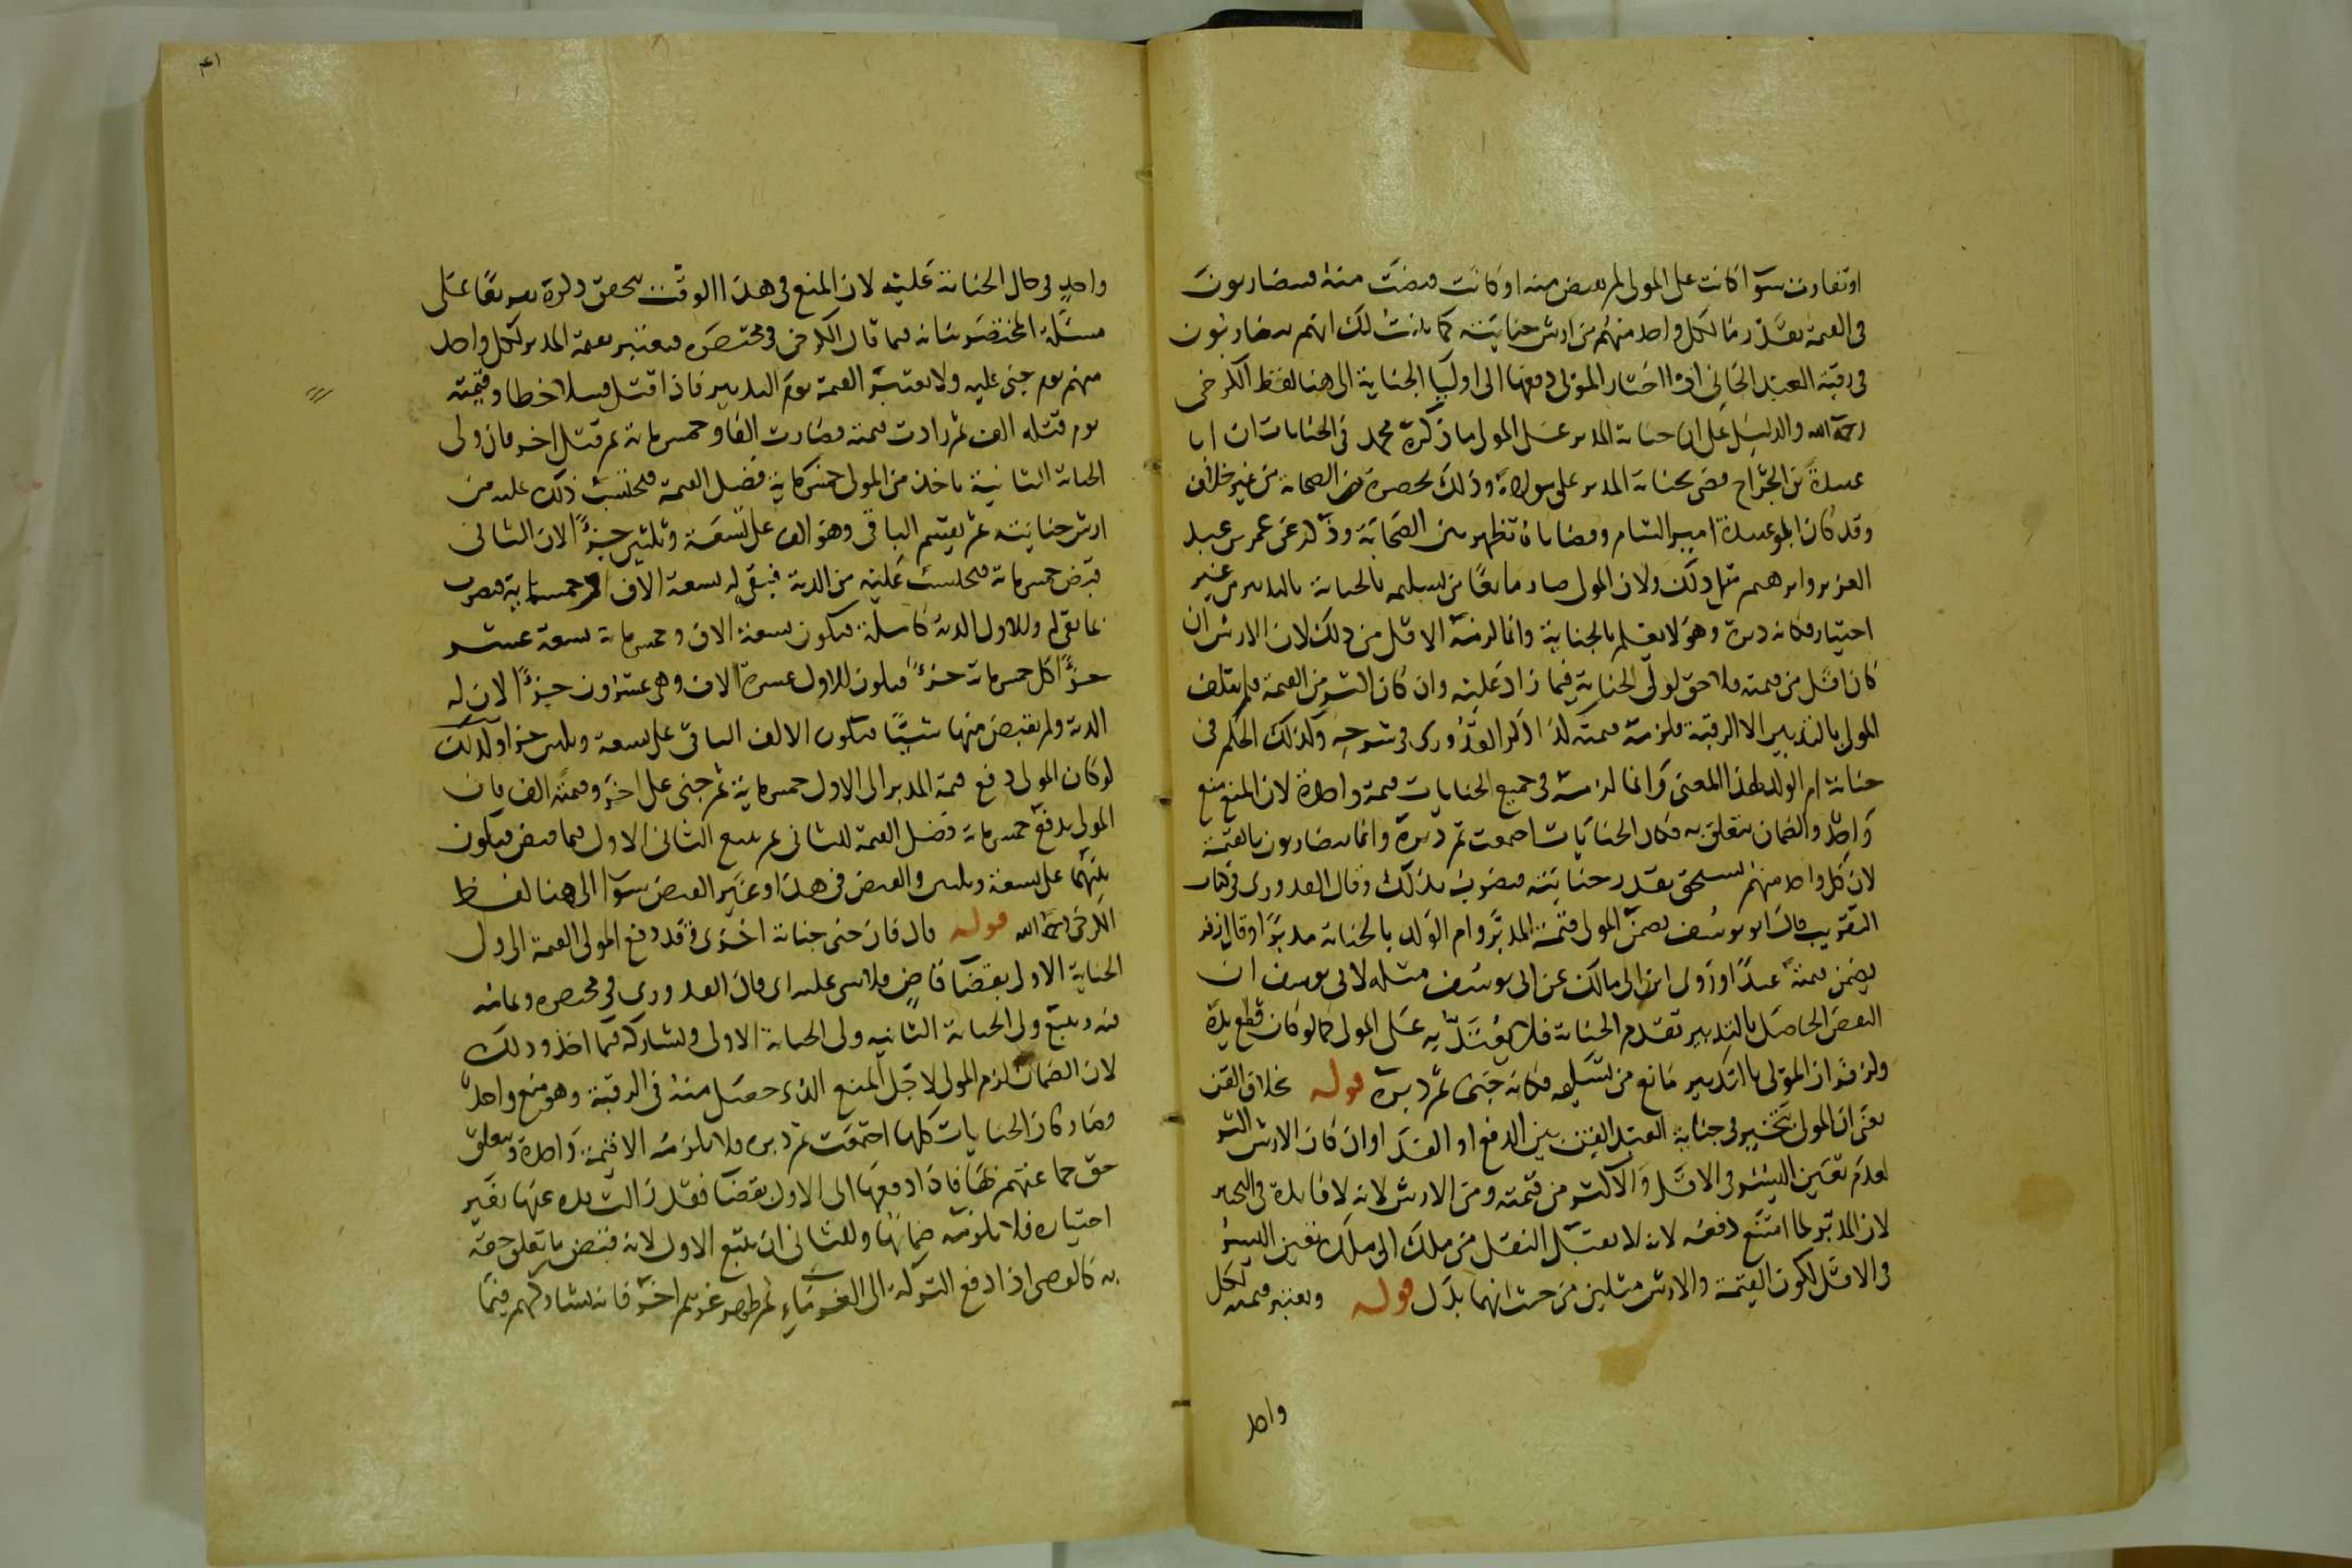 او تفاوت سوا كانت على المولى لم يقبض منه او كانت قبضت منه فيتضاربون
فى القيمة بقدر ما لكل واحد منهم من ارش جنايته كما بينت لك انهم يتضاربون
فى رقبة العبد الجانى اذا اختار المولى دفعها الى اوليا الجناية الى هنا لفظ الكرخى
رحمه الله والدليل على ان جناية المدبر على المولى ما ذكره محمد فى الجنايات ان ابا
عبيدة بن الجراح قضى بجناية المدبر على مولاه وذلك بحضرة من الصحابة من غير خلاف
وقد كان ابو عبيدة امير الشام وقضاياه تظهر بين الصحابة وذكر عن عمر بن عبد
العزيز وابرهيم مثل ذلك ولان المولى صار مانعا من تسليمه بالجناية بالتدبير من غير
اختيار فكانه دبره وهو لا يعلم بالجناية وانما لزمه الاقل من ذلك لان الارش ان
كان اقل من قيمته فلا حق لولى الجناية فيما زاد عليه وان كان اكثر من القيمة فلم يتلف
المولى بالتدبير الا الرقبة فلزمه قيمته لذا ذكر القدورى فى شرحه وكذلك الحكم فى
جناية ام الولد لهذا المعنى وانما لزمه فى جميع الجنايات قيمة واحدة لان المنع منع
واحد والضمان يتعلق به فكان الجنايات اجتمعت ثم دبره وانما يتضاربون بالقيمة
لان كل واحد منهم يستحق بقدر جنايته فيضرب بذلك وقال القدورى فى كتاب
التقريب قال ابو يوسف يضمن المولى قيمة المدبر وام الولد بالجناية مدبرا وقال زفر
يضمن قيمته عبدا وروى ابن ابى مالك عن ابى يوسف مثله لابى يوسف ان
النقص الحاصل بالتدبير تقدم الجناية فلا يعتد به على المولى كما لو كان قطع يده
ولزفر ان المولى بالتدبير مانع من تسليمه فكانه جنى ثم دبره قوله بخلاف القن
يعنى ان المولى يتخير فى جناية العبد القن بين الدفع او الفدا وان كان الارش اكثر
لعدم تعين اليسر فى الاقل والاكثر من قيمته ومن الارش لانه لا فايدة فى التخيير
لان المدبر لما امتنع دفعه لانه لا يقبل النقل من ملك الى ملك تعين اليسر
فى الاقل لكون القيمة والارش مثلين من حيث انهما بدل قوله وتعتبر قيمته لكل
واحد
٤١
واحد فى حال الجناية عليه لان المنع فى هذا الوقت يتحقق ذكره تفريعا على
مسئلة المختصر بيانه فيما قال الكرخى فى مختصره فتعتبر قيمة المدبر لكل واحد
منهم يوم جنى عليه ولا تعتبر القيمة يوم التدبير فاذا قتل قتيلا خطا وقيمته
يوم قتله الف ثم زادت قيمته فصارت الفا وخمس ماية ثم قتل اخر فان ولى
الجناية الثانية ياخذ من المولى خمس ماية فضل القيمة فيحتسب ذلك عليه من
ارش جنايته ثم يقتسم الباقى وهو الف على تسعة وثلثين جزءا لان الثانى
قبض خمس ماية فيحتسب عليه من الدية فيبقى له تسعة الاف وخمسماية فيضرب
بما بقى له وللاول الدية كاملة فيكون تسعة الاف وخمس ماية تسعة عشر
جزءا كل خمس ماية جزءا فيكون للاول عشرة الاف وهى عشرون جزءا لان له
الدية ولم يقبض منها شيئا فيكون الالف الباقى على تسعة وثلثين جزا وكذلك
لو كان المولى دفع قيمة المدبر الى الاول خمس ماية ثم جنى على اخر وقيمته الف فان
المولى يدفع خمس ماية فضل القيمة للثانى ثم يتبع الثانى الاول فيما قبض فيكون
بينهما على تسعة وثلثين والقبض فى هذا وغير القبض سوا الى هنا لفظ
الكرخى رحمه الله قوله قال فان جنى جناية اخرى وقد دفع المولى القيمة الى ولى
الجناية الاولى بقضا قاض فلا شى عليه اى قال القدورى فى مختصره وتمامه
فيه ويتبع ولى الجناية الثانيه ولى الجناية الاولى ويشاركه فيما اخذ وذلك
لان الضمان لزم المولى لاجل المنع الذى حصل منه فى الرقبة وهو منع واحد
وصار كان الجنايات كلها اجتمعت ثم دبره فلا يلزمه الا قيمة واحدة ويتعلق
حق جماعتهم بها فاذا دفعها الى الاول بقضا فقد زالت يده عنها بغير
اختياره فلا يلزمه ضمانها وللثانى ان يتبع الاول لانه قبض ما يتعلق حقه
به كالوصى اذا دفع التركة الى الغرماء ثم ظهر غريم اخر فانه يشاركهم فيما